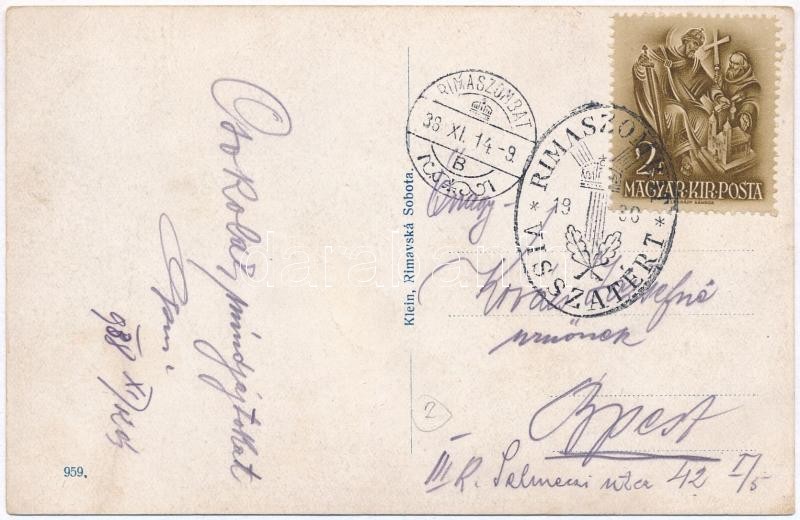 Csókoláz mindnyájatokat
938 XI/14
959.
Klein, Rimavská Sobota.
RIMASZOMBAT
38 XI. 14-9
B
RIMASZOMBAT
19 38
* VISSZATÉRT *
2
MAGYAR·KIR·POSTA
darabanth
Kovács
urnőnek
Bpest
III K. Selmeczi utca 42 I/5
2